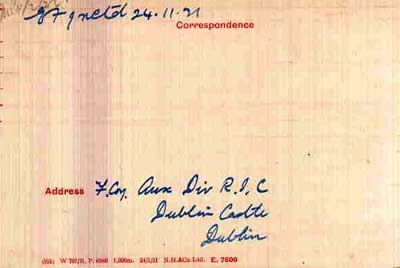 24.11.21
Correspondence
Address F. Coy. Aux Div R.I.C
Dublin Castle
Dublin
W 707/R.P. 6980 1,000m. 24/5/21 N.H.&Co. Ltd. E. 7600